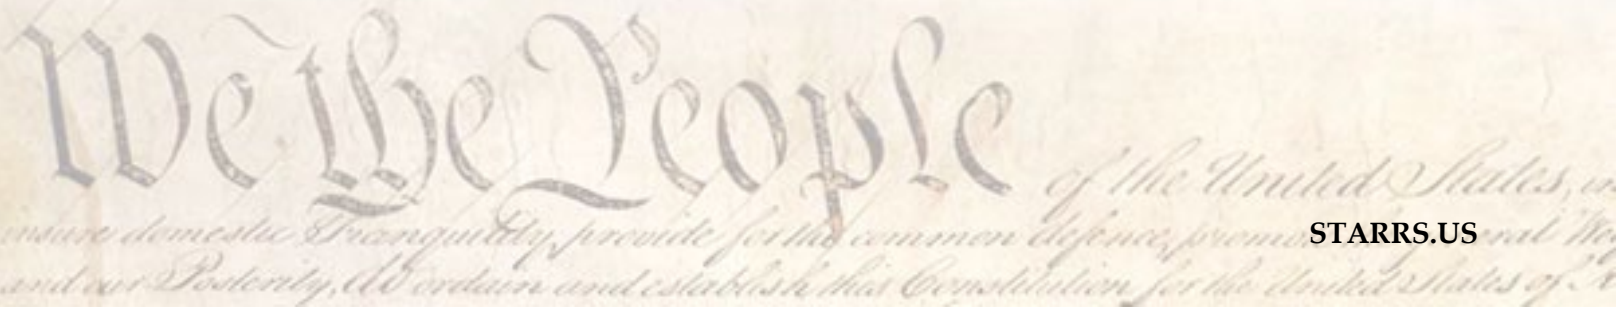 We the People of the United States,
insure domestic Tranquility, provide for the common defence,
STARRS.US
and our Posterity, do ordain and establish this Constitution for the United States of